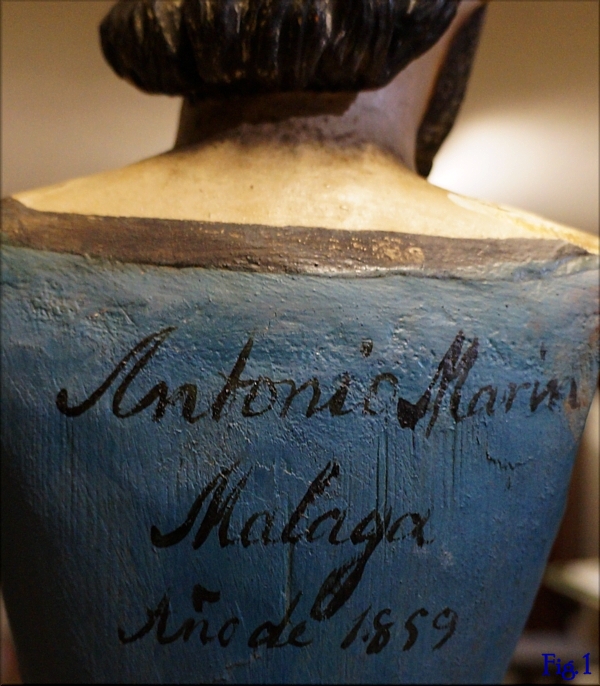 Antonio Marin
Malaga
Año de 1859
Fig.1